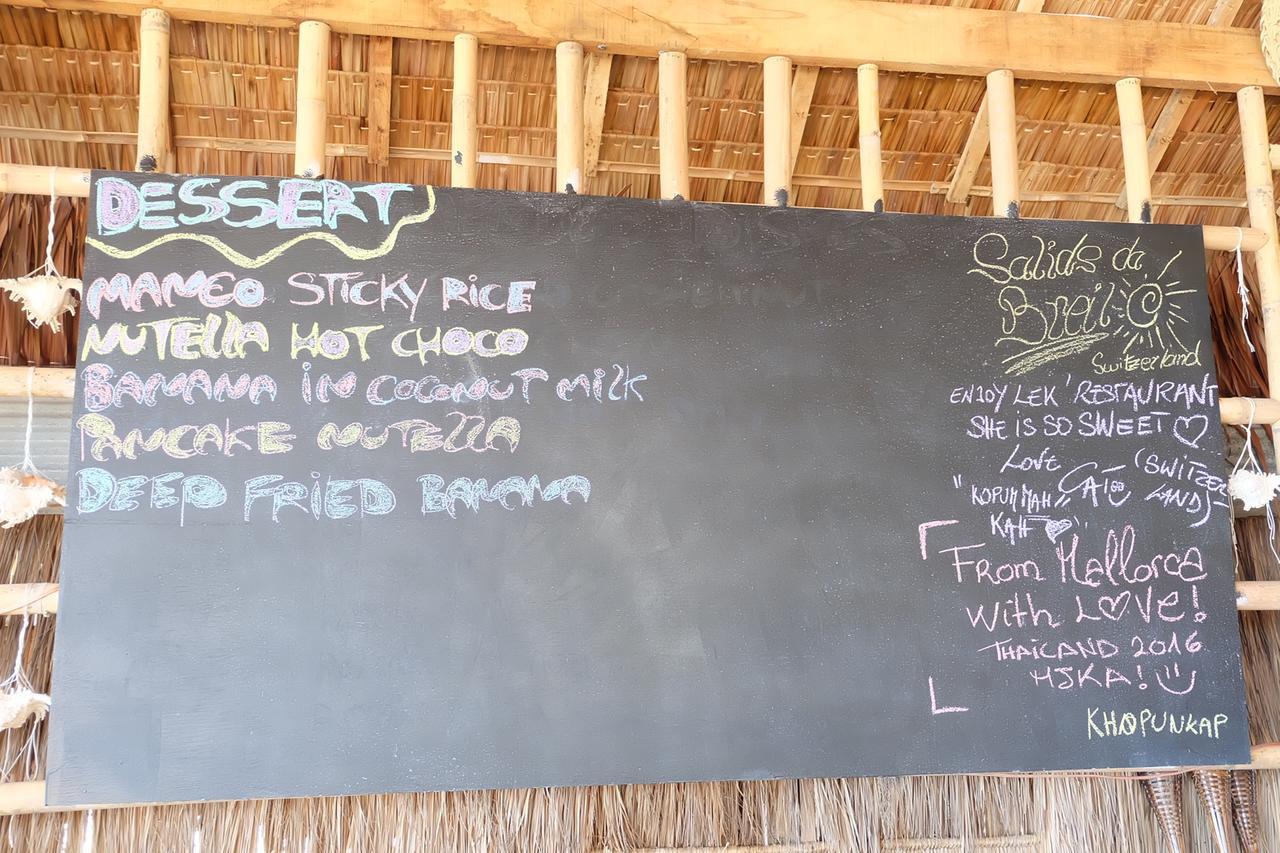 DESSERT
MANGO STICKY RICE
NUTELLA HOT CHOCO
BANANA IN COCONUT MILK
PANCAKE NUTELLA
DEEP FRIED BANANA
Salide da
Breil
Switzerland
ENJOY LEK' RESTAURANT
SHE IS SO SWEET
LOVE
"KOPUN MAH"
KAH
From Mallorca
with LOVE!
THAILAND 2016
KHOPUNKAP